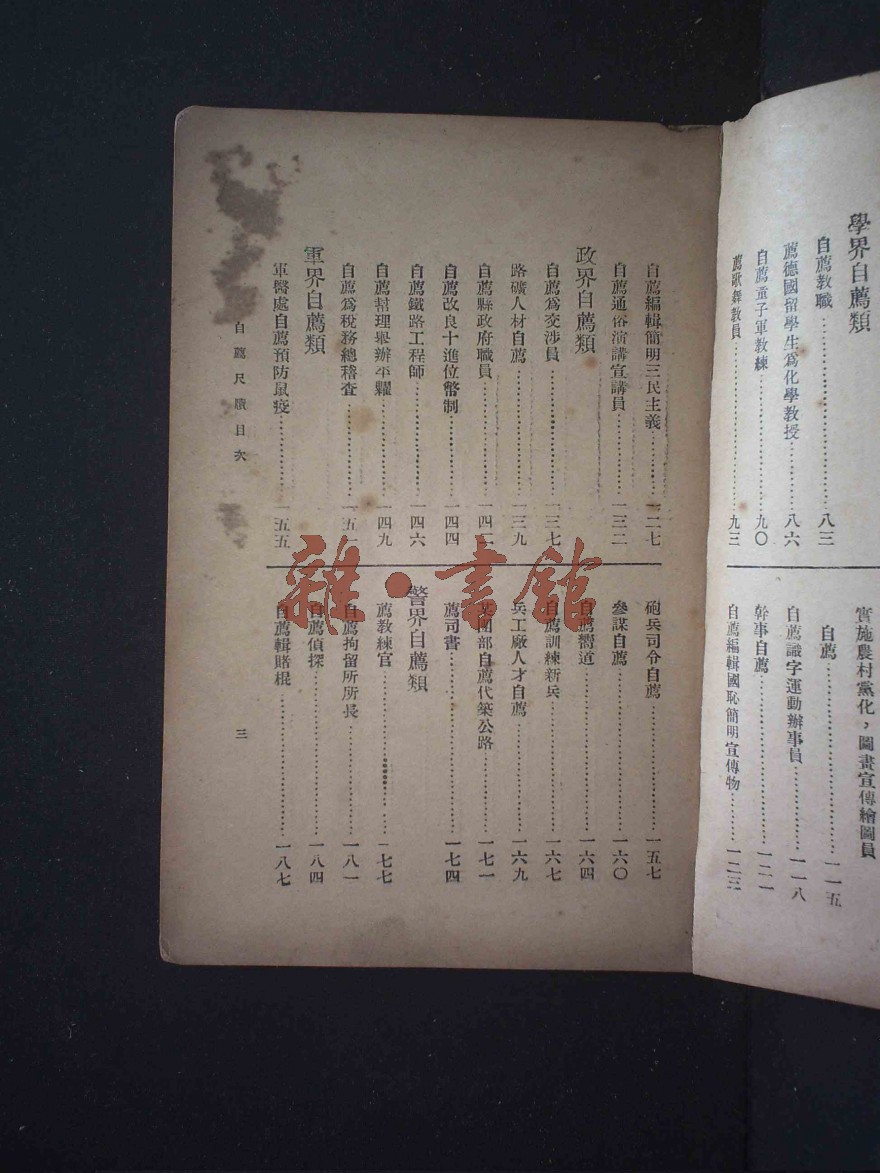 學界自薦類
自薦教職……八三
薦德國留學生爲化學教授……八六
自薦童子軍教練……九〇
薦歌舞教員……九三
實施農村黨化，圖畫宣傳繪圖員
自薦……一一五
自薦識字運動辦事員……一一八
幹事自薦……一二一
自薦編輯國恥簡明宣傳物……一二三
自薦編輯簡明三民主義……一二七
自薦通俗演講宣講員……一三二
政界自薦類
自薦爲交涉員……一三七
路礦人材自薦……一三九
自薦縣政府職員……一四二
自薦改良十進位幣制……一四四
自薦鐵路工程師……一四六
自薦幫理舉辦平糶……一四九
自薦爲稅務總稽查……一五一
軍界自薦類
軍醫處自薦預防鼠疫……一五五
砲兵司令自薦……一五七
參謀自薦……一六〇
自薦嚮道……一六四
自薦訓練新兵……一六七
兵工廠人才自薦……一六九
某團部自薦代築公路……一七一
薦司書……一七四
警界自薦類
薦教練官……一七七
自薦拘留所所長……一八一
自薦偵探……一八四
自薦輯賭棍……一八七
自薦尺牘目次
三
雜·書館